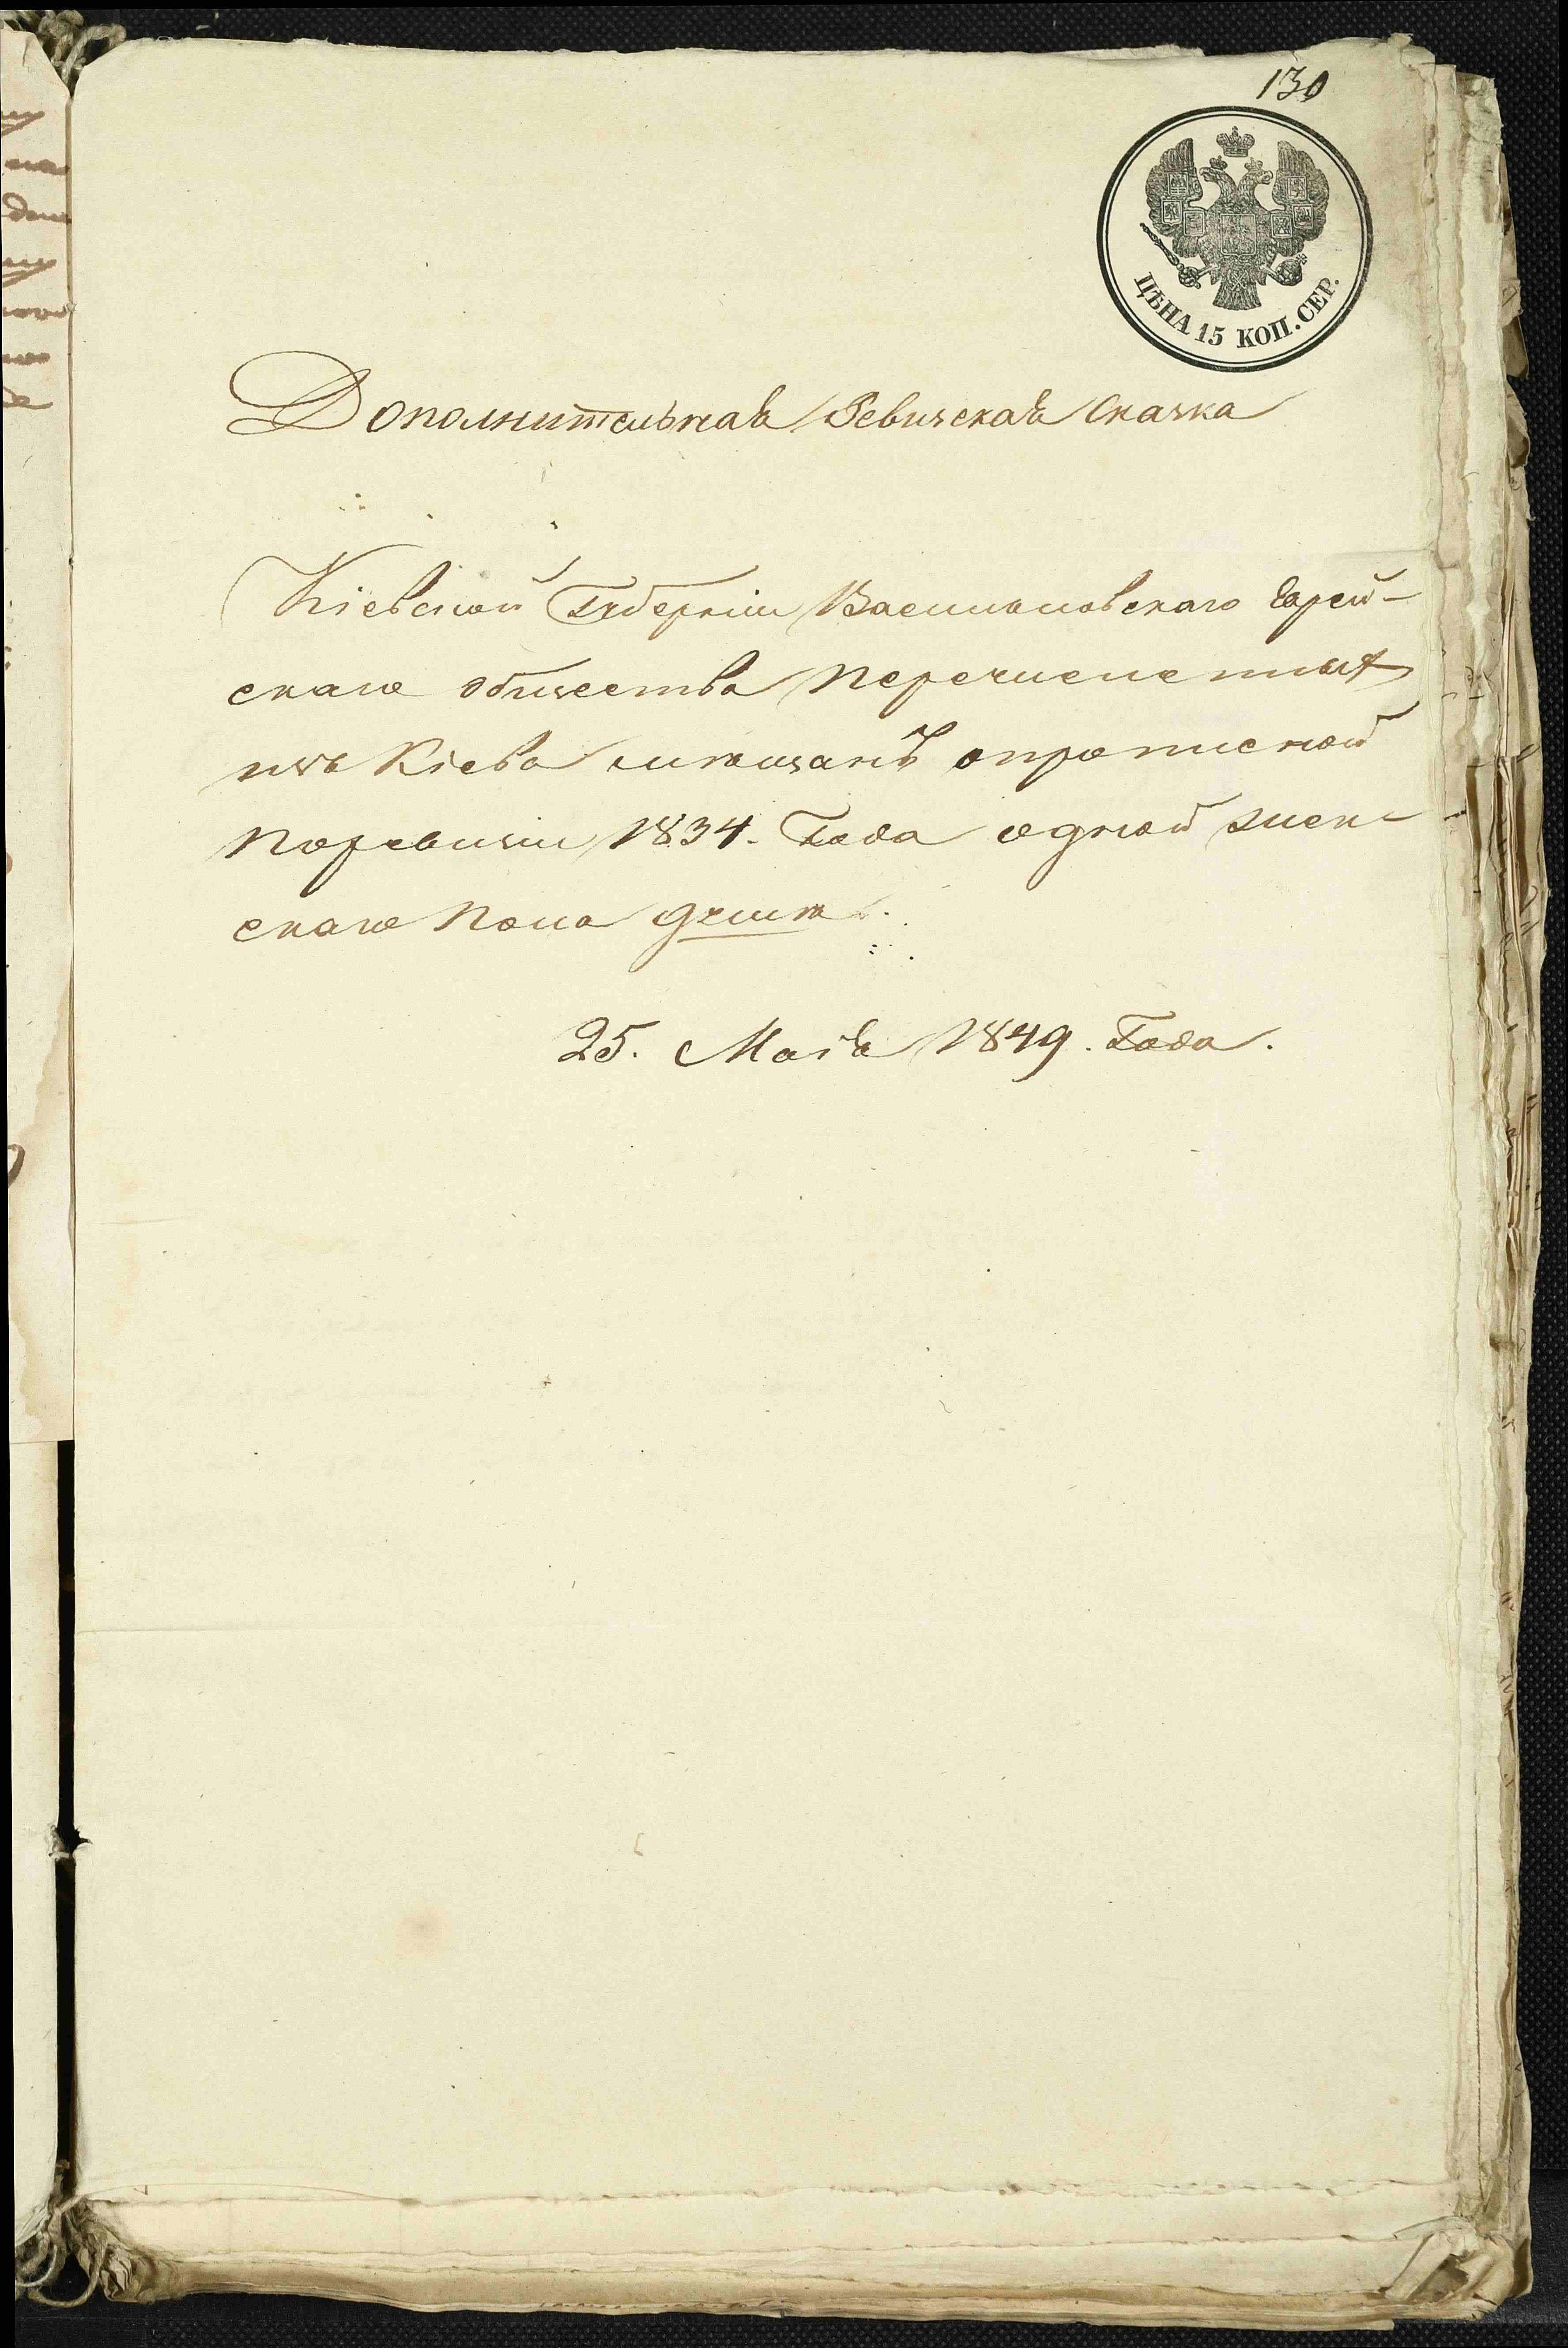 130
ЦѢНА 15 КОП. СЕР.
Дополнительная Ревизская Сказка
Кіевской Губерніи Васильковскаго Еврей-
скаго общества перечисленных
изъ Кіева мещанъ опрописной
поревизіи 1834. Года одной женс-
скаго пола душе.
25. Маія 1849. Года.